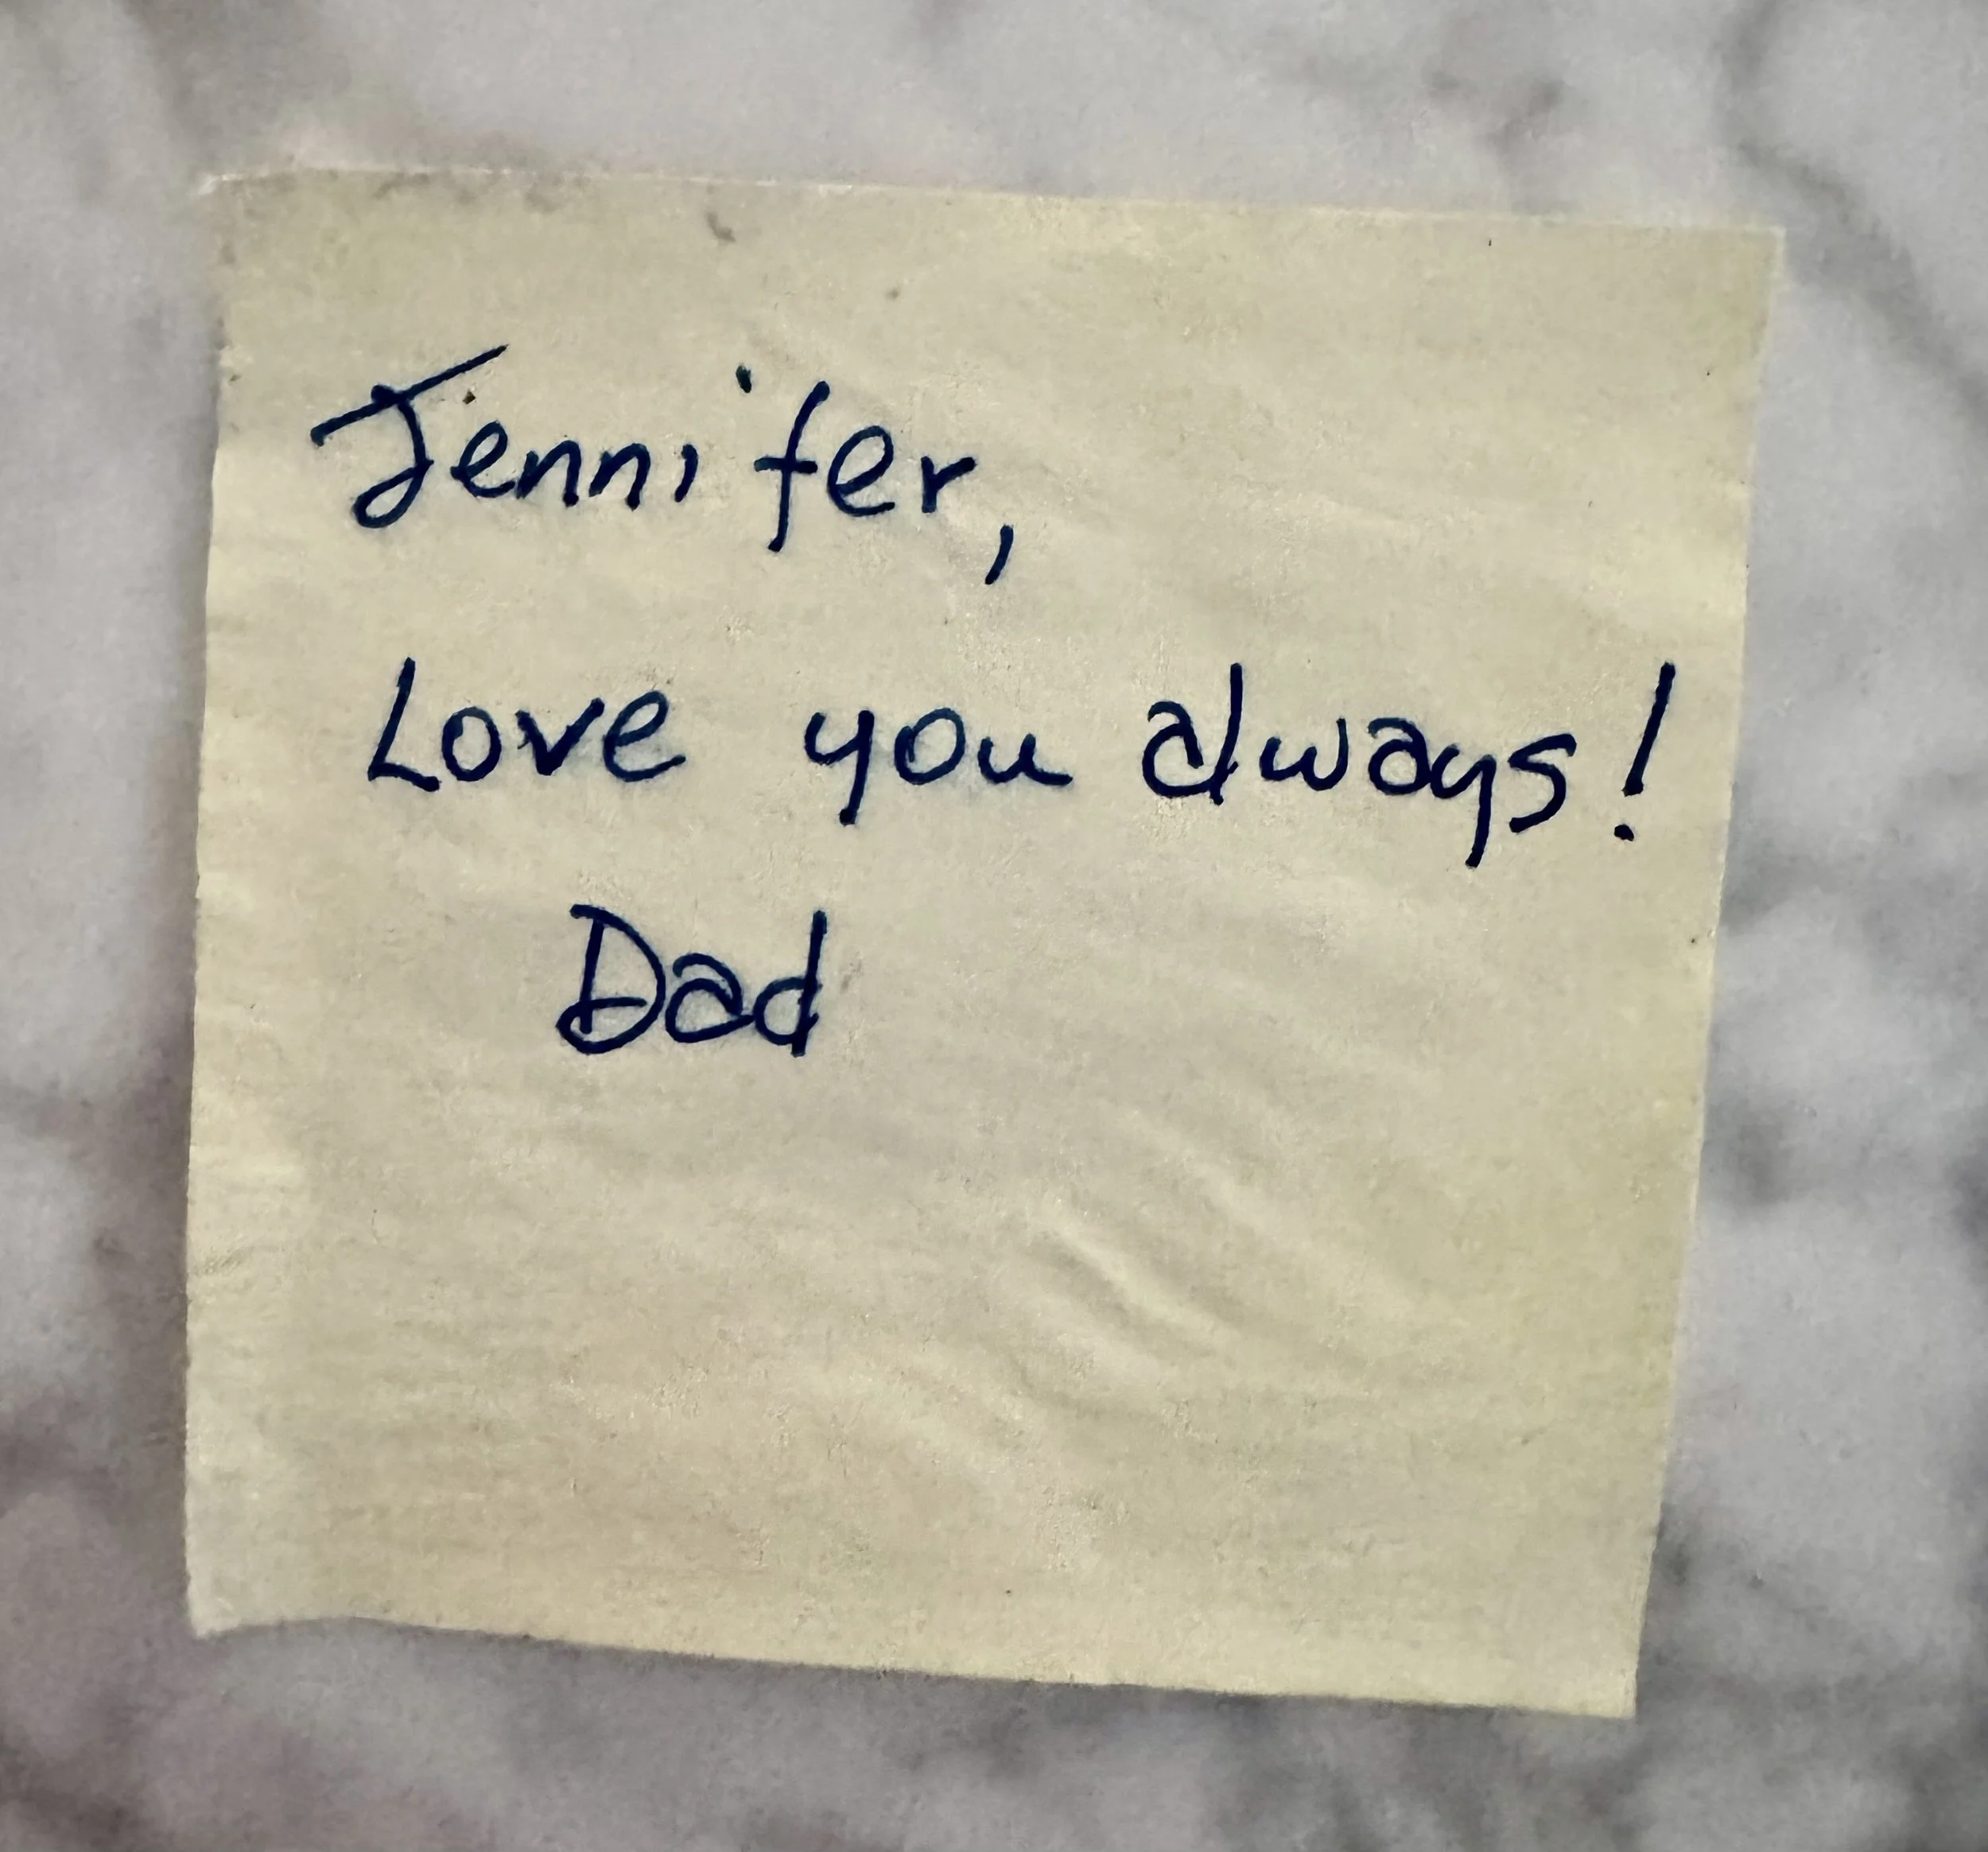 Jennifer,
Love you always!
Dad